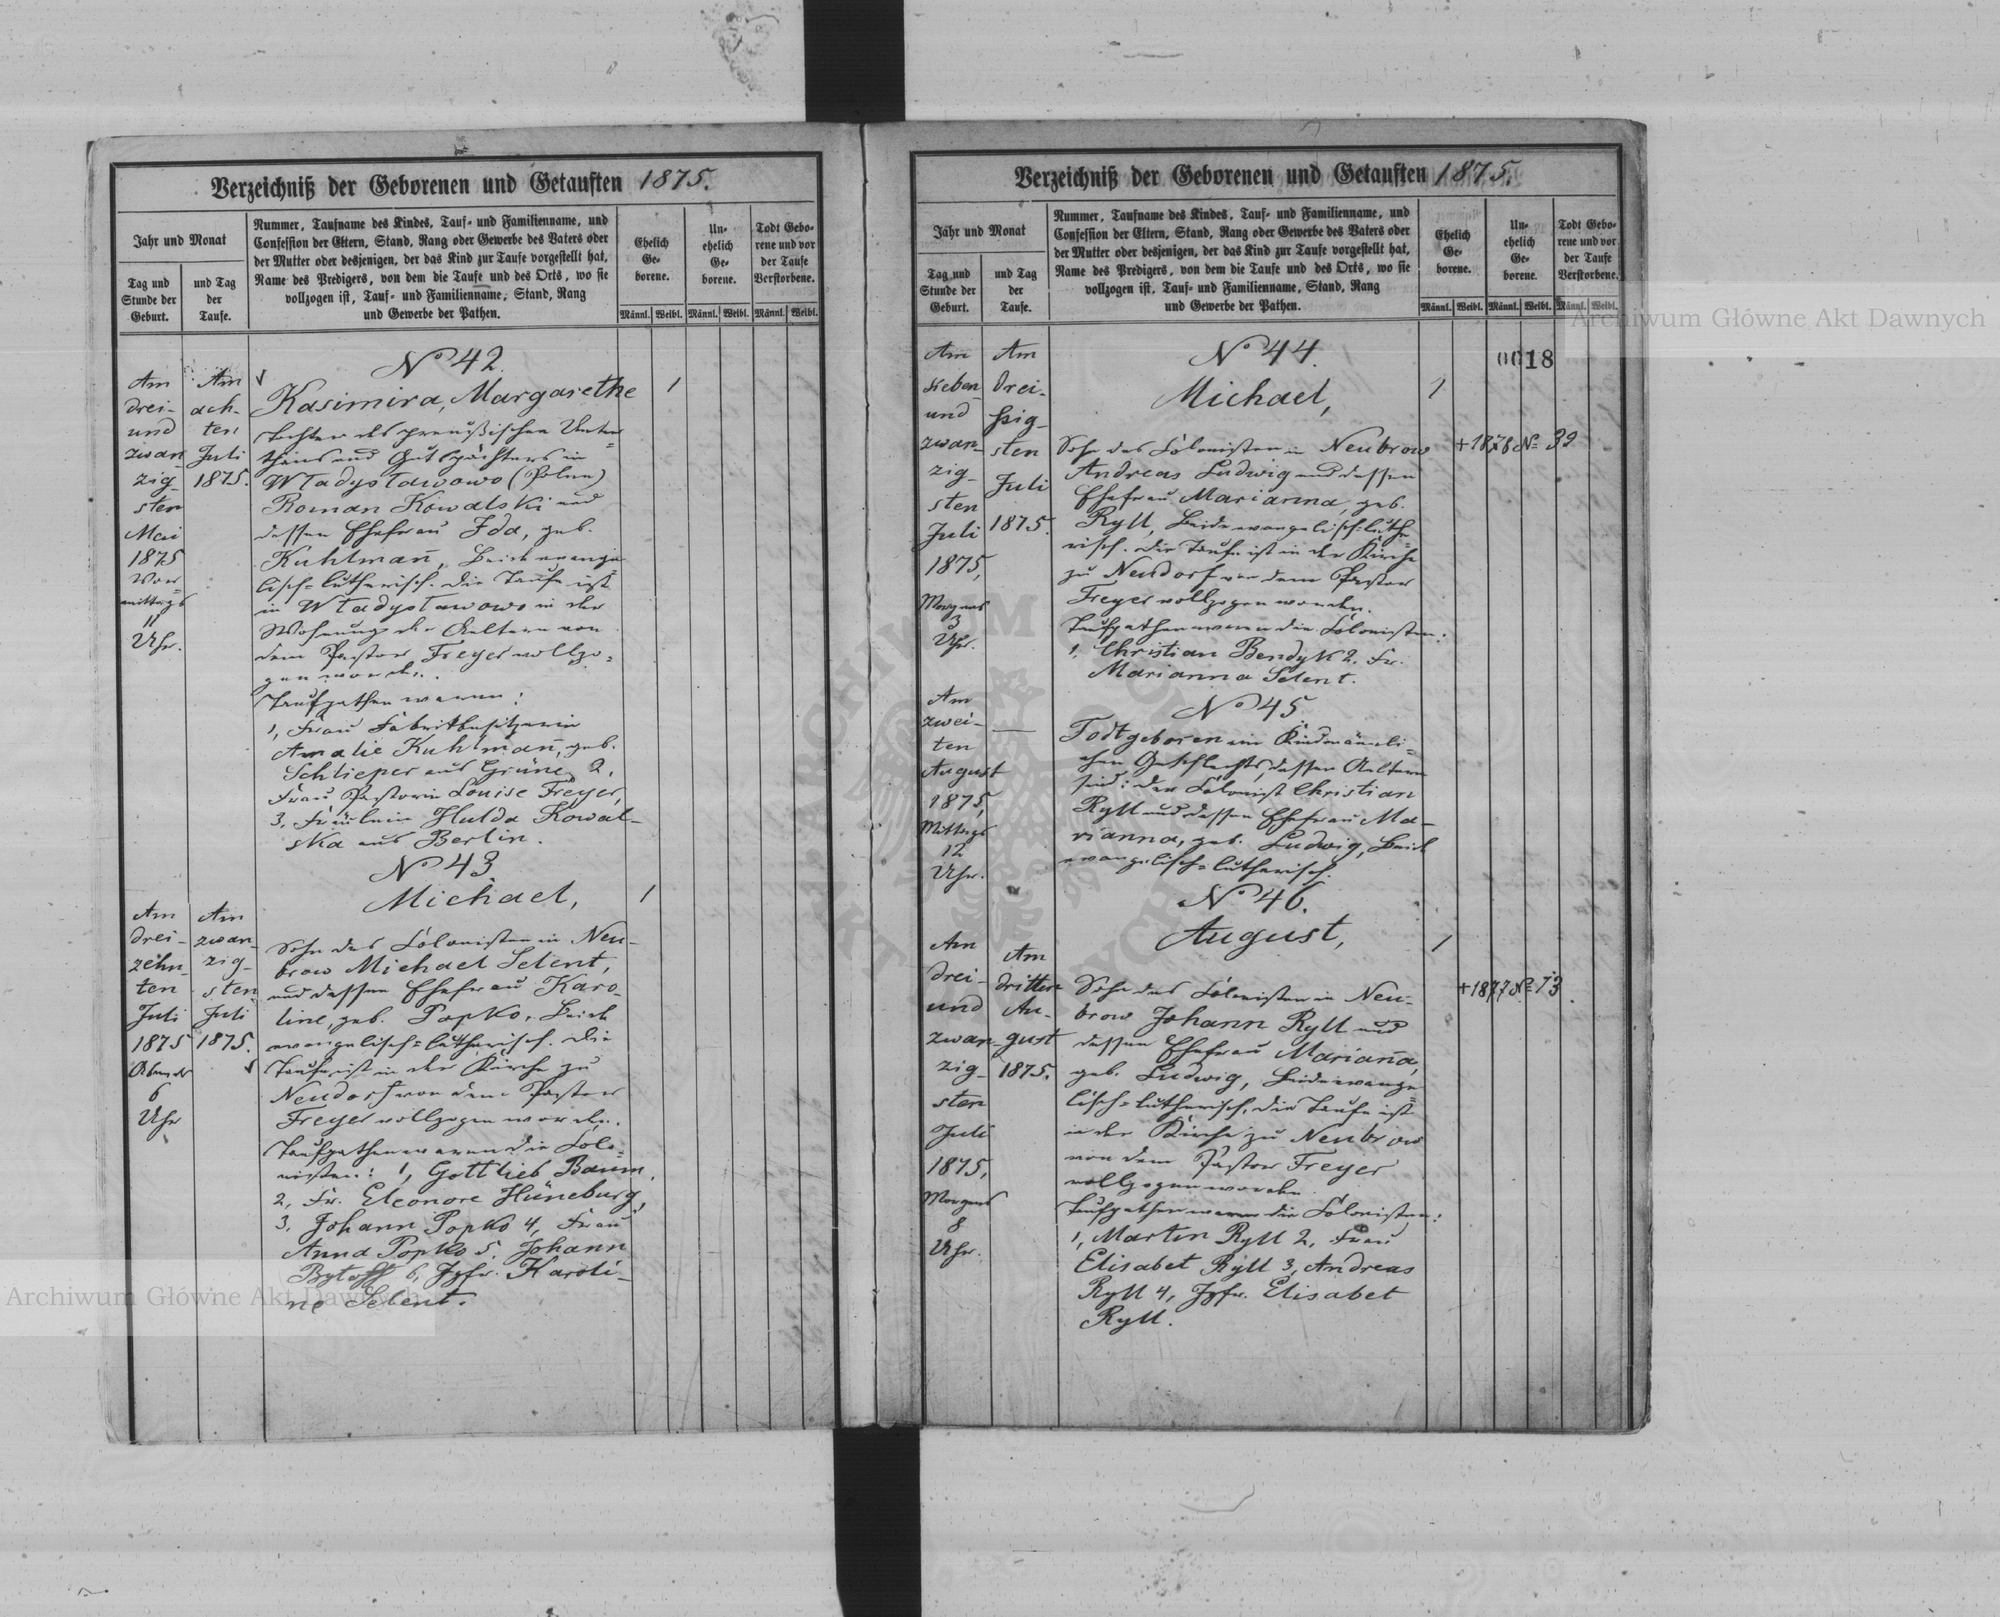 Verzeichniß der Geborenen und Getauften 1875.
Jahr und Monat
Tag und
Stunde der
Geburt.
und Tag
der
Taufe.
Nummer, Taufname des Kindes, Tauf- und Familienname, und
Confession der Eltern, Stand, Rang oder Gewerbe des Vaters oder
der Mutter oder desjenigen, der das Kind zur Taufe vorgestellt hat,
Name des Predigers, von dem die Taufe und des Orts, wo sie
vollzogen ist, Tauf- und Familienname, Stand, Rang
und Gewerbe der Pathen.
Ehelich
Ge-
borene.
Un-
ehelich
Ge-
borene.
Todt Gebo-
rene und vor
der Taufe
Verstorbene.
Männl. Weibl. Männl. Weibl. Männl. Weibl.
Am
drei-
und
zwan-
zig-
sten
Mai
1875
Vor-
mittags
11
Uhr.
Am
ach-
ten
Juli
1875.
No 42.
Kasimira, Margarethe
1
Tochter des preußischen Unter=
thans und Gutspächters in
Władysławowo (Polen)
Roman Kowalski und
dessen Ehefrau Ida, geb.
Kuhlmañ, Beide evange=
lisch=lutherisch. Die Taufe ist
in Władysławowo in der
Wohnung der Aeltern von
dem Pastor Freyer vollzo=
gen worden.
Taufpathen waren:
1, Frau Fabrikbesitzerin
Amalie Kuhlmañ, geb.
Schlieper aus Grüne, 2,
Frau Pastorin Louise Freyer,
3, Fräulein Hulda Kowal-
ska aus Berlin.
Am
drei-
zehn-
ten
Juli
1875
Abends
6
Uhr
Am
zwan-
zig-
sten
Juli
1875.
No 43.
Michael,
1
Sohn des Colonisten in Neu-
brow Michael Selent,
und dessen Ehefrau Karo-
line, geb. Popko, Beide
evangelisch=lutherisch. Die
Taufe ist in der Kirche zu
Neudorf von dem Pastor
Freyer vollzogen worden.
Taufpathen waren die Colo=
nisten: 1, Gottlieb Baum,
2, Fr. Eleonore Hüneburg,
3, Johann Popko 4, Frau
Anna Popko 5, Johann
Bytoff 6, Jgfr. Karoli-
ne Selent.
Verzeichniß der Geborenen und Getauften 1875.
Jahr und Monat
Tag und
Stunde der
Geburt.
und Tag
der
Taufe.
Nummer, Taufname des Kindes, Tauf- und Familienname, und
Confession der Eltern, Stand, Rang oder Gewerbe des Vaters oder
der Mutter oder desjenigen, der das Kind zur Taufe vorgestellt hat,
Name des Predigers, von dem die Taufe und des Orts, wo sie
vollzogen ist, Tauf- und Familienname, Stand, Rang
und Gewerbe der Pathen.
Ehelich
Ge-
borene.
Un-
ehelich
Ge-
borene.
Todt Gebo-
rene und vor
der Taufe
Verstorbene.
Männl. Weibl. Männl. Weibl. Männl. Weibl.
0018
Am
sieben
und
zwan-
zig-
sten
Juli
1875,
Morgens
3
Uhr.
Am
drei-
ßig-
sten
Juli
1875.
No 44.
Michael,
1
Sohn des Colonisten in Neubrow
+1878 No 39
Andreas Ludwig und dessen
Ehefrau Marianna, geb.
Ryll, Beide evangelisch=luthe=
risch. Die Taufe ist in der Kirche
zu Neudorf von dem Pastor
Freyer vollzogen worden.
Taufpathen waren die Colonisten:
1, Christian Bendyk 2, Fr.
Marianna Selent.
Am
zwei-
ten
August
1875,
Mittags
12
Uhr.
No 45
Todtgeboren ein Kind männli=
chen Geschlechts, dessen Aeltern
sind: der Colonist Christian
Ryll und dessen Ehefrau Ma-
rianna, geb. Ludwig, Beide
evangelisch=lutherisch.
Am
drei-
und
zwan-
zig-
sten
Juli
1875,
Morgens
8
Uhr.
Am
dritten
Au-
gust
1875.
No 46.
August,
1
Sohn des Colonisten in Neu-
+1877 No 13
brow Johann Ryll und
dessen Ehefrau Mariañа,
geb. Ludwig, Beide evange=
lisch=lutherisch. Die Taufe ist
in der Kirche zu Neubrow
von dem Pastor Freyer
vollzogen worden.
Taufpathen waren die Colonisten:
1, Martin Ryll 2, Frau
Elisabet Ryll 3, Andreas
Ryll 4, Jgfr. Elisabet
Ryll.
Archiwum Główne Akt Dawnych
Archiwum Główne Akt Dawnych